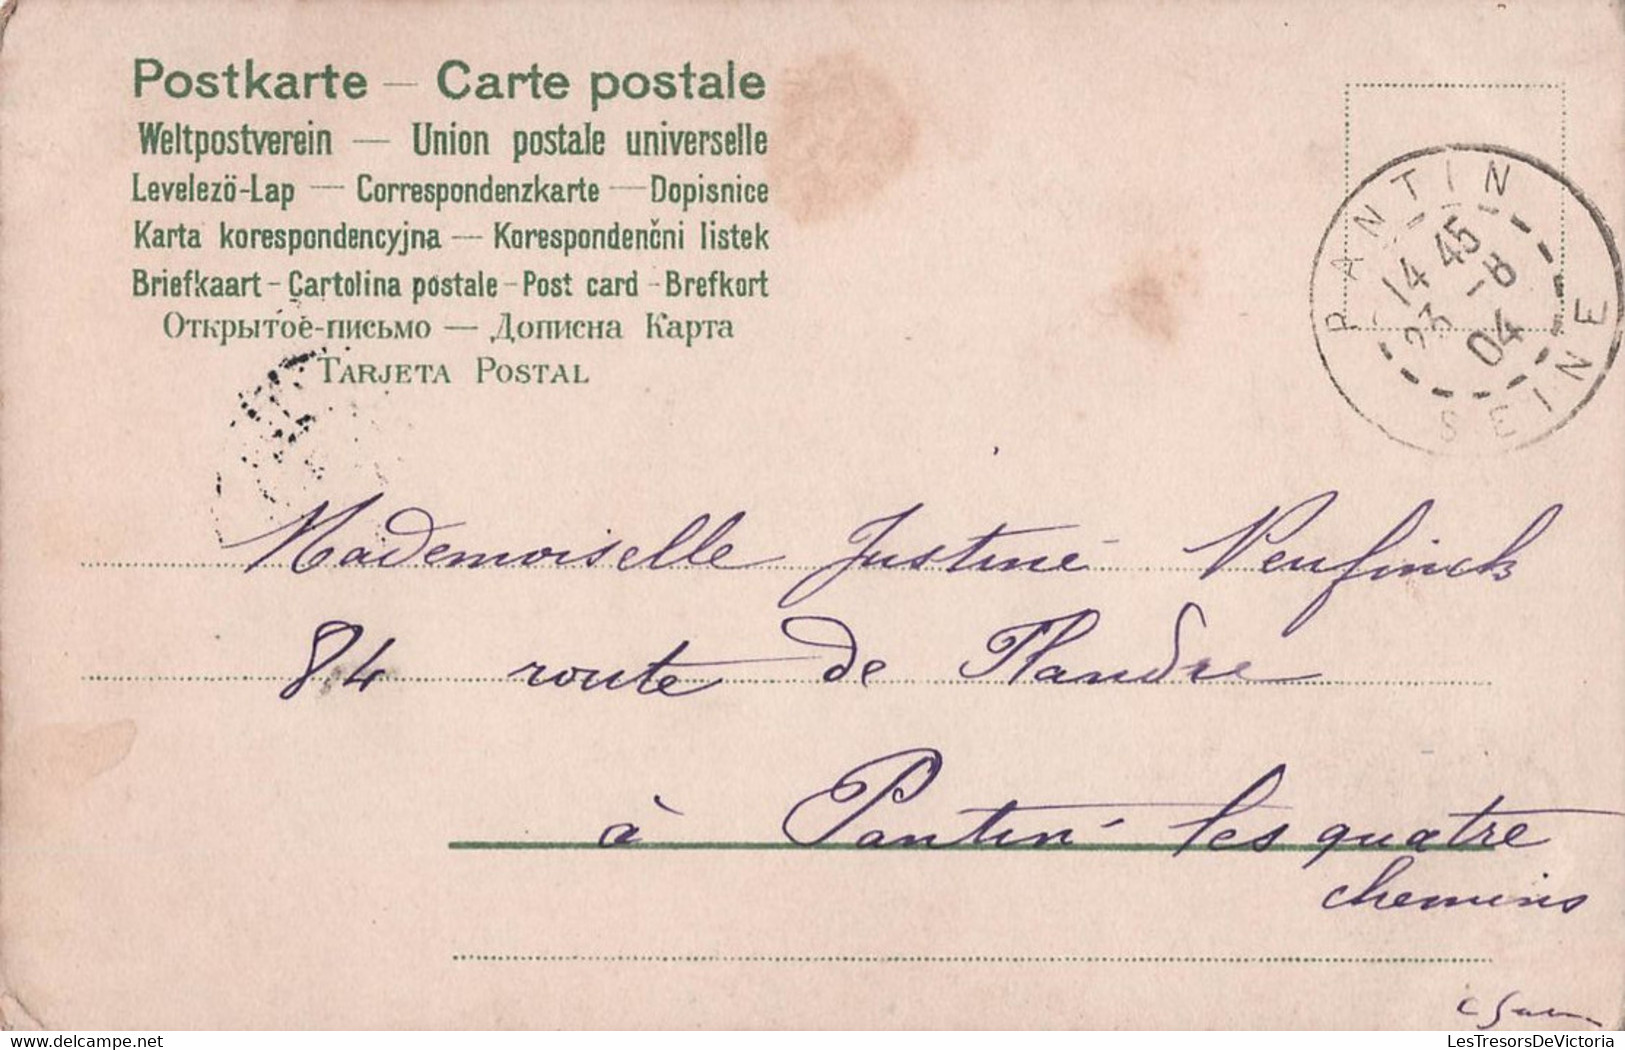 Postkarte — Carte postale
Weltpostverein — Union postale universelle
Levelezö-Lap — Correspondenzkarte — Dopisnice
Karta korespondencyjna — Korespondenčni listek
Briefkaart - Cartolina postale - Post card - Brefkort
Открытое-письмо — Дописна Карта
Tarjeta Postal
PANTIN
14 45
23 -8
04
SEINE
Mademoiselle Justine Neufinck
84 route de Flandre
à Pantin les quatre
chemins
www.delcampe.net
LesTresorsDeVictoria